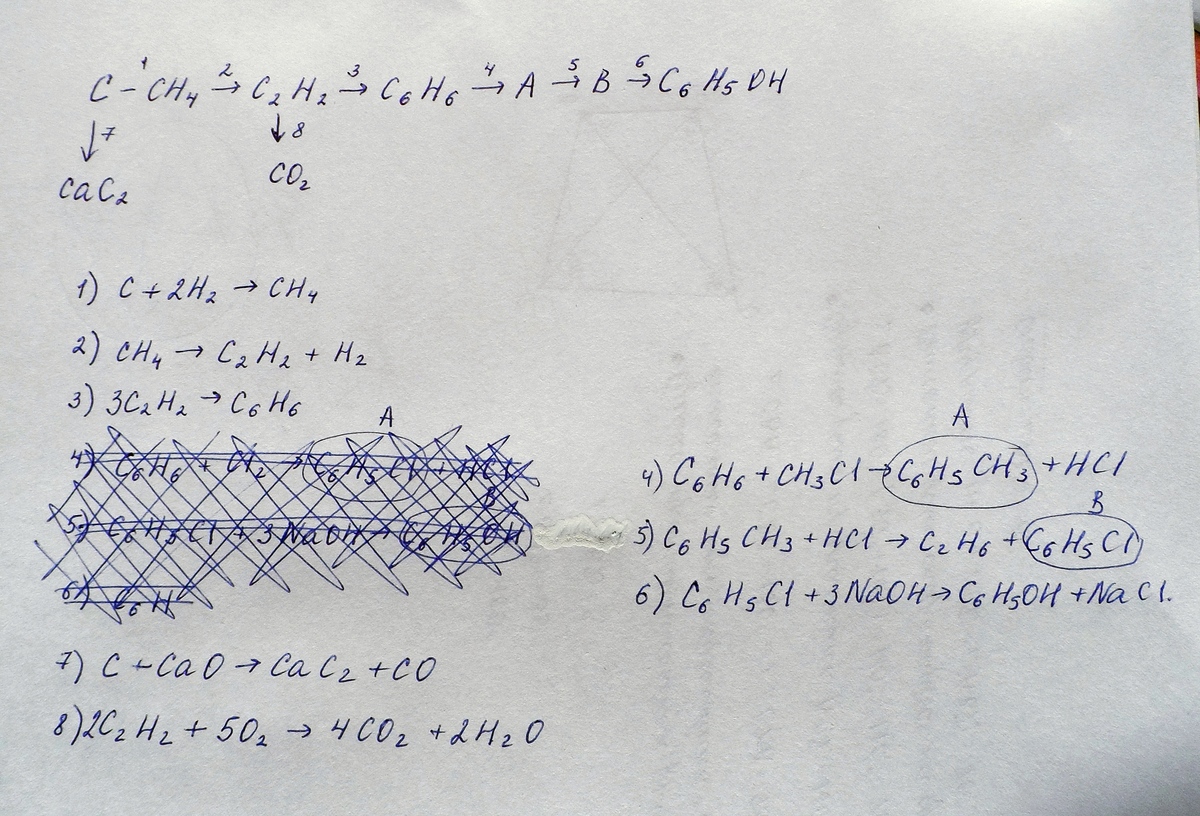 C -¹ CH₄ →² C₂H₂ →³ C₆H₆ →⁴ A →⁵ B →⁶ C₆H₅OH
↓7 ↓8
CaC₂ CO₂
1) C + 2H₂ → CH₄
2) CH₄ → C₂H₂ + H₂
3) 3C₂H₂ → C₆H₆
A
4) C₆H₆ + Cl₂ → C₆H₅Cl + HCl
B
5) C₆H₅Cl + 3NaOH → C₆H₅OH
6) C₆H
A
4) C₆H₆ + CH₃Cl → C₆H₅CH₃ + HCl
B
5) C₆H₅CH₃ + HCl → C₂H₆ + C₆H₅Cl
6) C₆H₅Cl + 3NaOH → C₆H₅OH + NaCl.
7) C + CaO → CaC₂ + CO
8) 2C₂H₂ + 5O₂ → 4CO₂ + 2H₂O